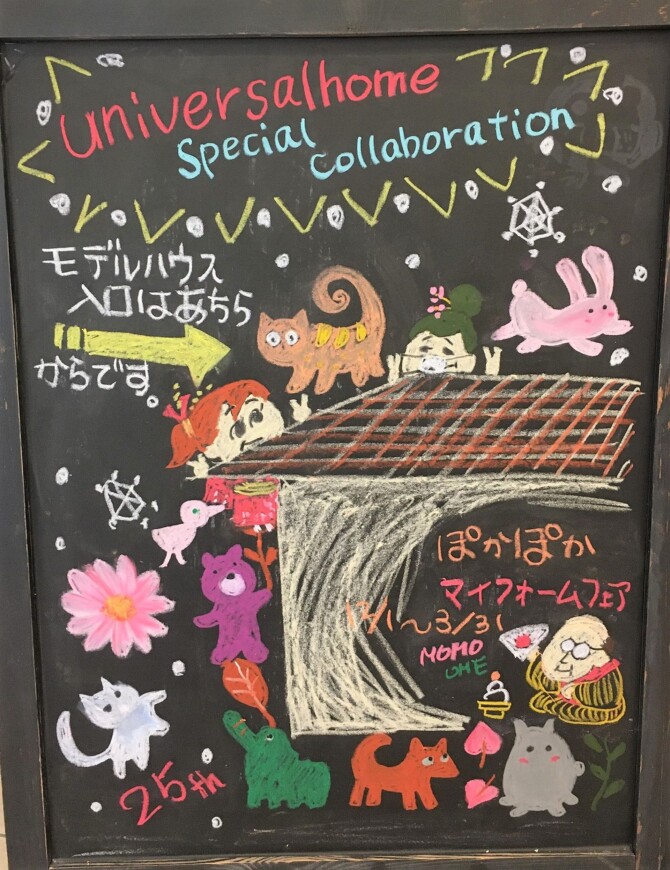 universalhome
Special collaboration
モデルハウス
入口はあちら
からです。
ぽかぽか
マイフォームフェア
12/1〜3/31
MOMO
UME
25th